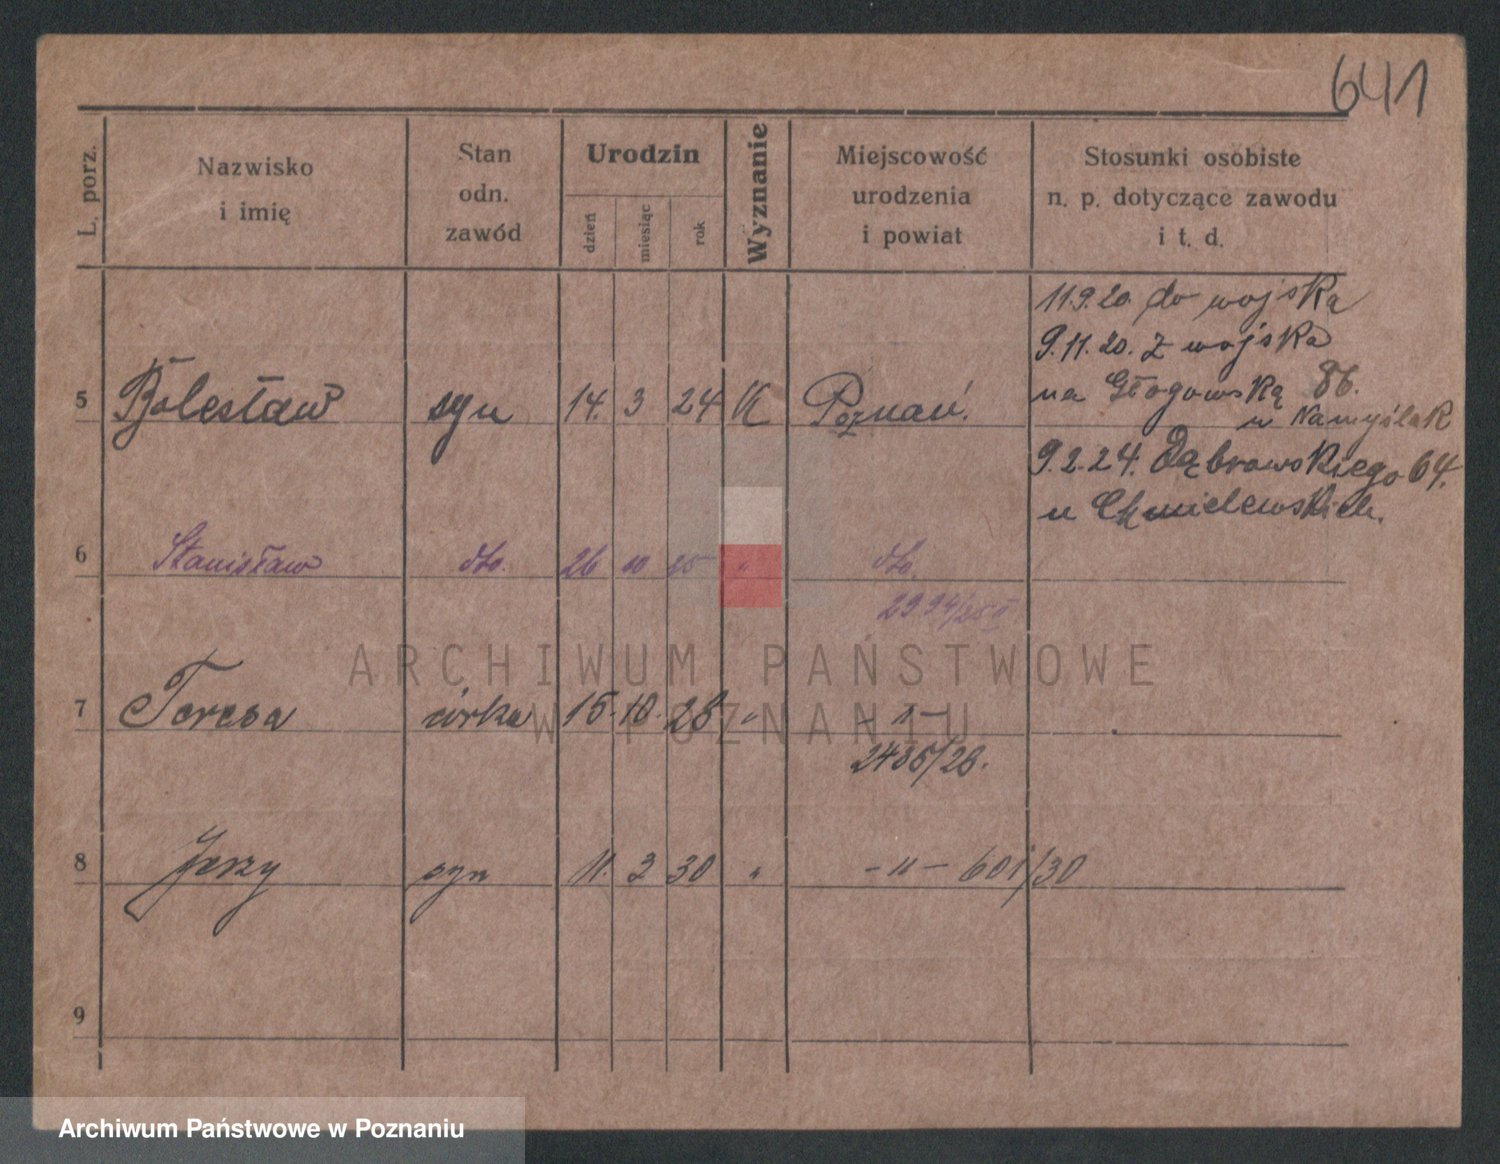 641
L. porz.
Nazwisko
i imię
Stan
odn.
zawód
Urodzin
dzień
miesiąc
rok
Wyznanie
Miejscowość
urodzenia
i powiat
Stosunki osobiste
n. p. dotyczące zawodu
i t. d.
11.9.20. do wojska
9.11.20. z wojska
na Głogowską 86.
u Namyślak
5 Bolesław syn 14. 3 24 K Poznań.
9.2.24. Dąbrowskiego 64.
u Chmielewskich.
6 Stanisław dto. 26 10 25 " dto.
2994/25 II
7 Teresa córka 15. 10. 26 " - " -
2435/26.
8 Jerzy syn 11. 3 30 " - " - 601/30
9
ARCHIWUM PAŃSTWOWE
W POZNANIU
Archiwum Państwowe w Poznaniu